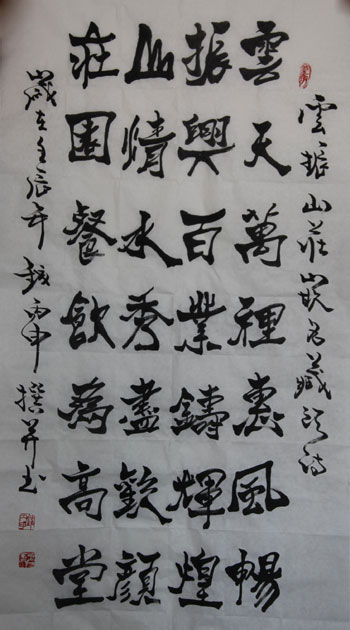 雲振山莊嵌名藏头诗
雲天萬里惠風暢
振興百業鑄輝煌
山情水秀盡歡顔
莊園餐飲為高堂
歲在壬辰年 丙申撰并书